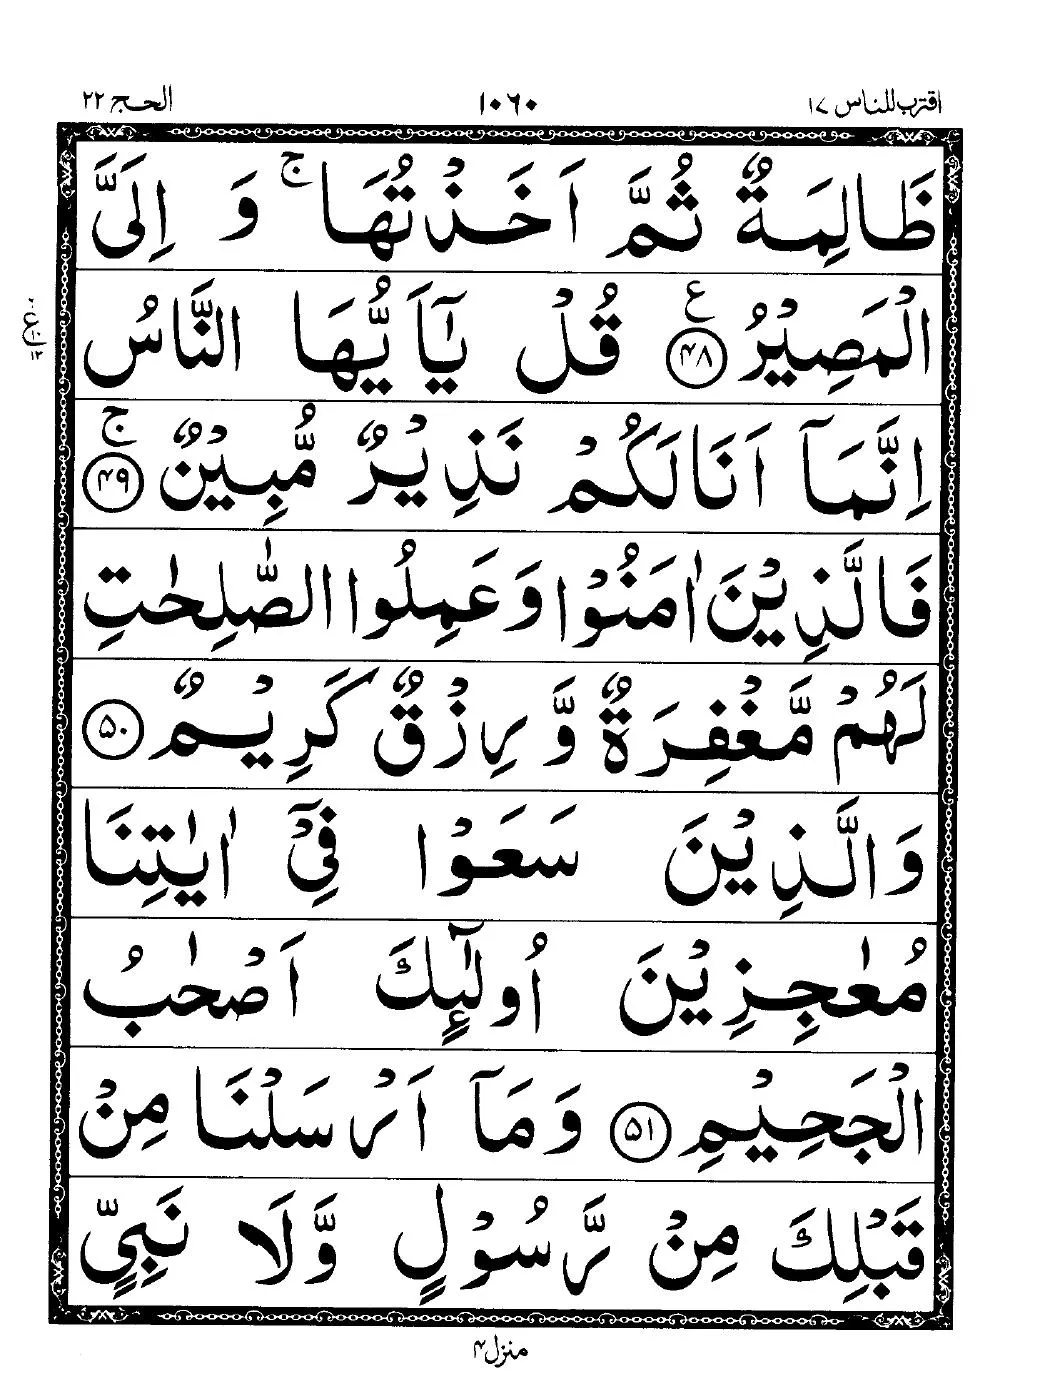 اقترب للناس ١٧ ١٠٦٠ الحج ٢٢
ظَالِمَةٌ ثُمَّ اَخَذْتُهَا ۚ وَ اِلَیَّ
الْمَصِیْرُ ﴿۴۸﴾ ع قُلْ یٰۤاَیُّهَا النَّاسُ
اِنَّمَاۤ اَنَا لَكُمْ نَذِیْرٌ مُّبِیْنٌ ۚ﴿۴۹﴾
فَالَّذِیْنَ اٰمَنُوْا وَ عَمِلُوا الصّٰلِحٰتِ
لَهُمْ مَّغْفِرَةٌ وَّ رِزْقٌ كَرِیْمٌ ﴿۵۰﴾
وَالَّذِیْنَ سَعَوْا فِیْۤ اٰیٰتِنَا
مُعٰجِزِیْنَ اُولٰٓىِٕكَ اَصْحٰبُ
الْجَحِیْمِ ﴿۵۱﴾ وَمَاۤ اَرْسَلْنَا مِنْ
قَبْلِكَ مِنْ رَّسُوْلٍ وَّلَا نَبِیٍّ
منزل ۴